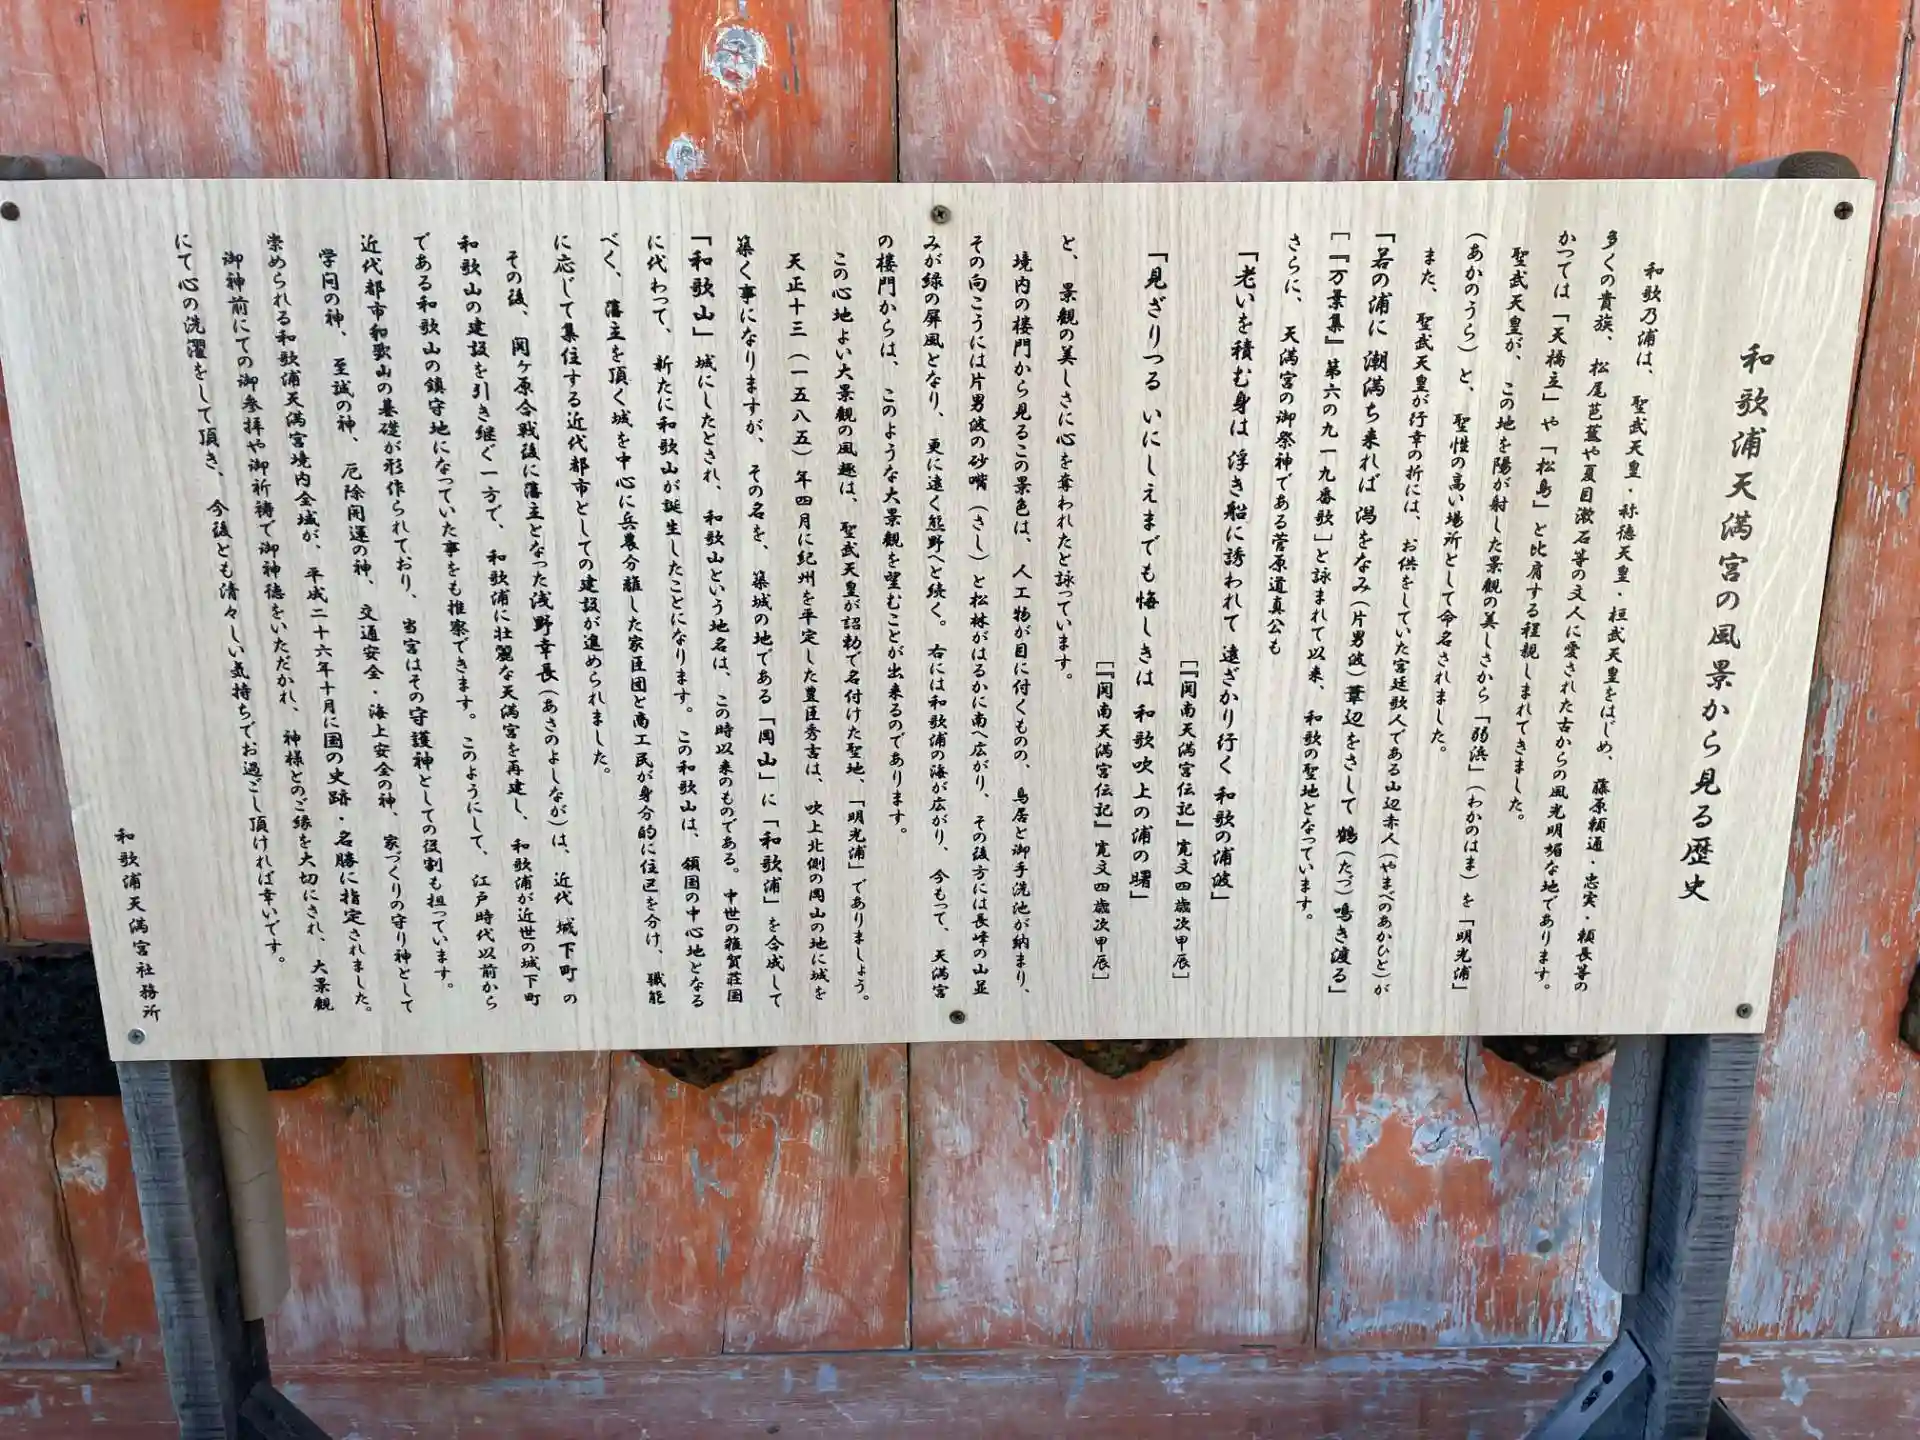 和歌浦天満宮の風景から見る歴史
和歌乃浦は、聖武天皇・称徳天皇・桓武天皇をはじめ、藤原頼通・忠実・頼長等の
多くの貴族、松尾芭蕉や夏目漱石等の文人に愛された古からの風光明媚な地であります。
かつては「天橋立」や「松島」と比肩する程親しまれてきました。
聖武天皇が、この地を陽が射した景観の美しさから「弱浜」(わかのはま)を「明光浦」
(あかのうら)と、聖性の高い場所として命名されました。
また、聖武天皇が行幸の折には、お供をしていた宮廷歌人である山辺赤人(やまべのあかひと)が
「若の浦に 潮満ち来れば 潟をなみ(片男波)葦辺をさして 鶴(たづ)鳴き渡る」
[『万景集』第六の九一九番歌]と詠まれて以来、和歌の聖地となっています。
さらに、天満宮の御祭神である菅原道真公も
「老いを積む身は 浮き船に誘われて 遠ざかり行く 和歌の浦波」
[『関南天満宮伝記』寛文四歳次甲辰]
「見ざりつる いにしえまでも悔しきは 和歌吹上の浦の曙」
[『関南天満宮伝記』寛文四歳次甲辰]
と、景観の美しさに心を奪われたと詠っています。
境内の楼門から見るこの景色は、人工物が目に付くものの、鳥居と御手洗池が納まり、
その向こうには片男波の砂嘴(さし)と松林がはるかに南へ広がり、その後方には長峰の山並
みが緑の屏風となり、更に遠く熊野へと続く。右には和歌浦の海が広がり、今もって、天満宮
の楼門からは、このような大景観を望むことが出来るのであります。
この心地よい大景観の風趣は、聖武天皇が詔勅で名付けた聖地、「明光浦」でありましょう。
天正十三(一五八五)年四月に紀州を平定した豊臣秀吉は、吹上北側の岡山の地に城を
築く事になりますが、その名を、築城の地である「岡山」に「和歌浦」を合成して
「和歌山」城にしたとされ、和歌山という地名は、この時以来のものである。中世の雑賀荘園
に代わって、新たに和歌山が誕生したことになります。この和歌山は、領国の中心地となる
べく、藩主を頂く城を中心に兵農分離した家臣団と商工民が身分的に住区を分け、職能
に応じて集住する近代都市としての建設が進められました。
その後、関ヶ原合戦後に藩主となった浅野幸長(あさのよしなが)は、近代 城下町 の
和歌山の建設を引き継ぐ一方で、和歌浦に壮麗な天満宮を再建し、和歌浦が近世の城下町
である和歌山の鎮守地になっていた事をも推察できます。このようにして、江戸時代以前から
近代都市和歌山の基礎が形作られており、当宮はその守護神としての役割も担っています。
学問の神、至誠の神、厄除開運の神、交通安全・海上安全の神、家づくりの守り神として
崇められる和歌浦天満宮境内全域が、平成二十六年十月に国の史跡・名勝に指定されました。
御神前にての御参拝や御祈祷で御神徳をいただかれ、神様とのご縁を大切にされ、大景観
にて心の洗濯をして頂き、今後とも清々しい気持ちでお過ごし頂ければ幸いです。
和歌浦天満宮社務所